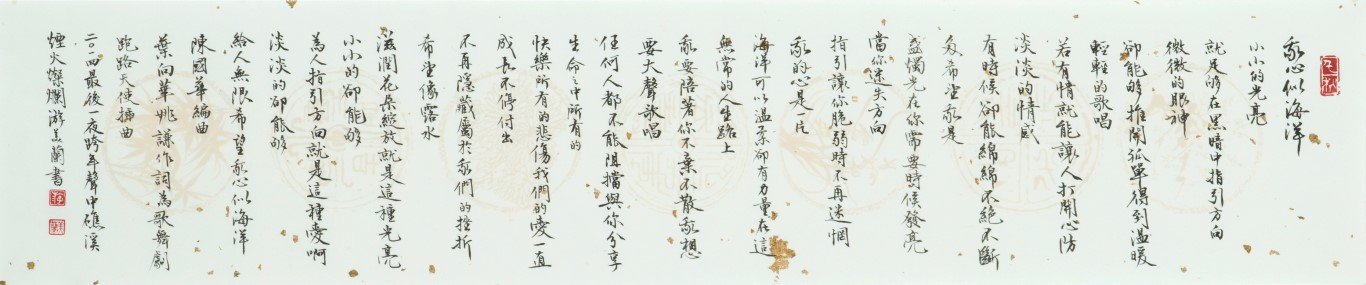 我心似海洋
小小的光亮
就足够在黑暗中指引方向
微微的眼神
卻能够推開孤單得到溫暖
輕輕的歌唱
若有情就能讓人打開心防
淡淡的情感
有時候卻能綿綿不絕不斷
多希望我是
盛燭光在你需要時候發亮
當你迷失方向
指引讓你脆弱時不再迷惘
我的心是一片
海洋可以溫柔卻有力量在這
無常的人生路上
我要陪著你不棄不散我想
要大聲歌唱
任何人都不能阻擋與你分享
生命之中所有的
快樂所有的悲傷我們的愛一直
成長不停付出
不再隱藏屬於我們的挫折
希望像露水
滋潤花朵綻放就是這種光亮
小小的卻能够
為人指引方向就是這種愛啊
淡淡的卻能够
給人無限希望我心似海洋
陳國華編曲
葉向華姚謙作詞為歌舞劇
跑路天使插曲
二〇一四最後一夜跨年聲中礁溪
煙火燦爛游美蘭書